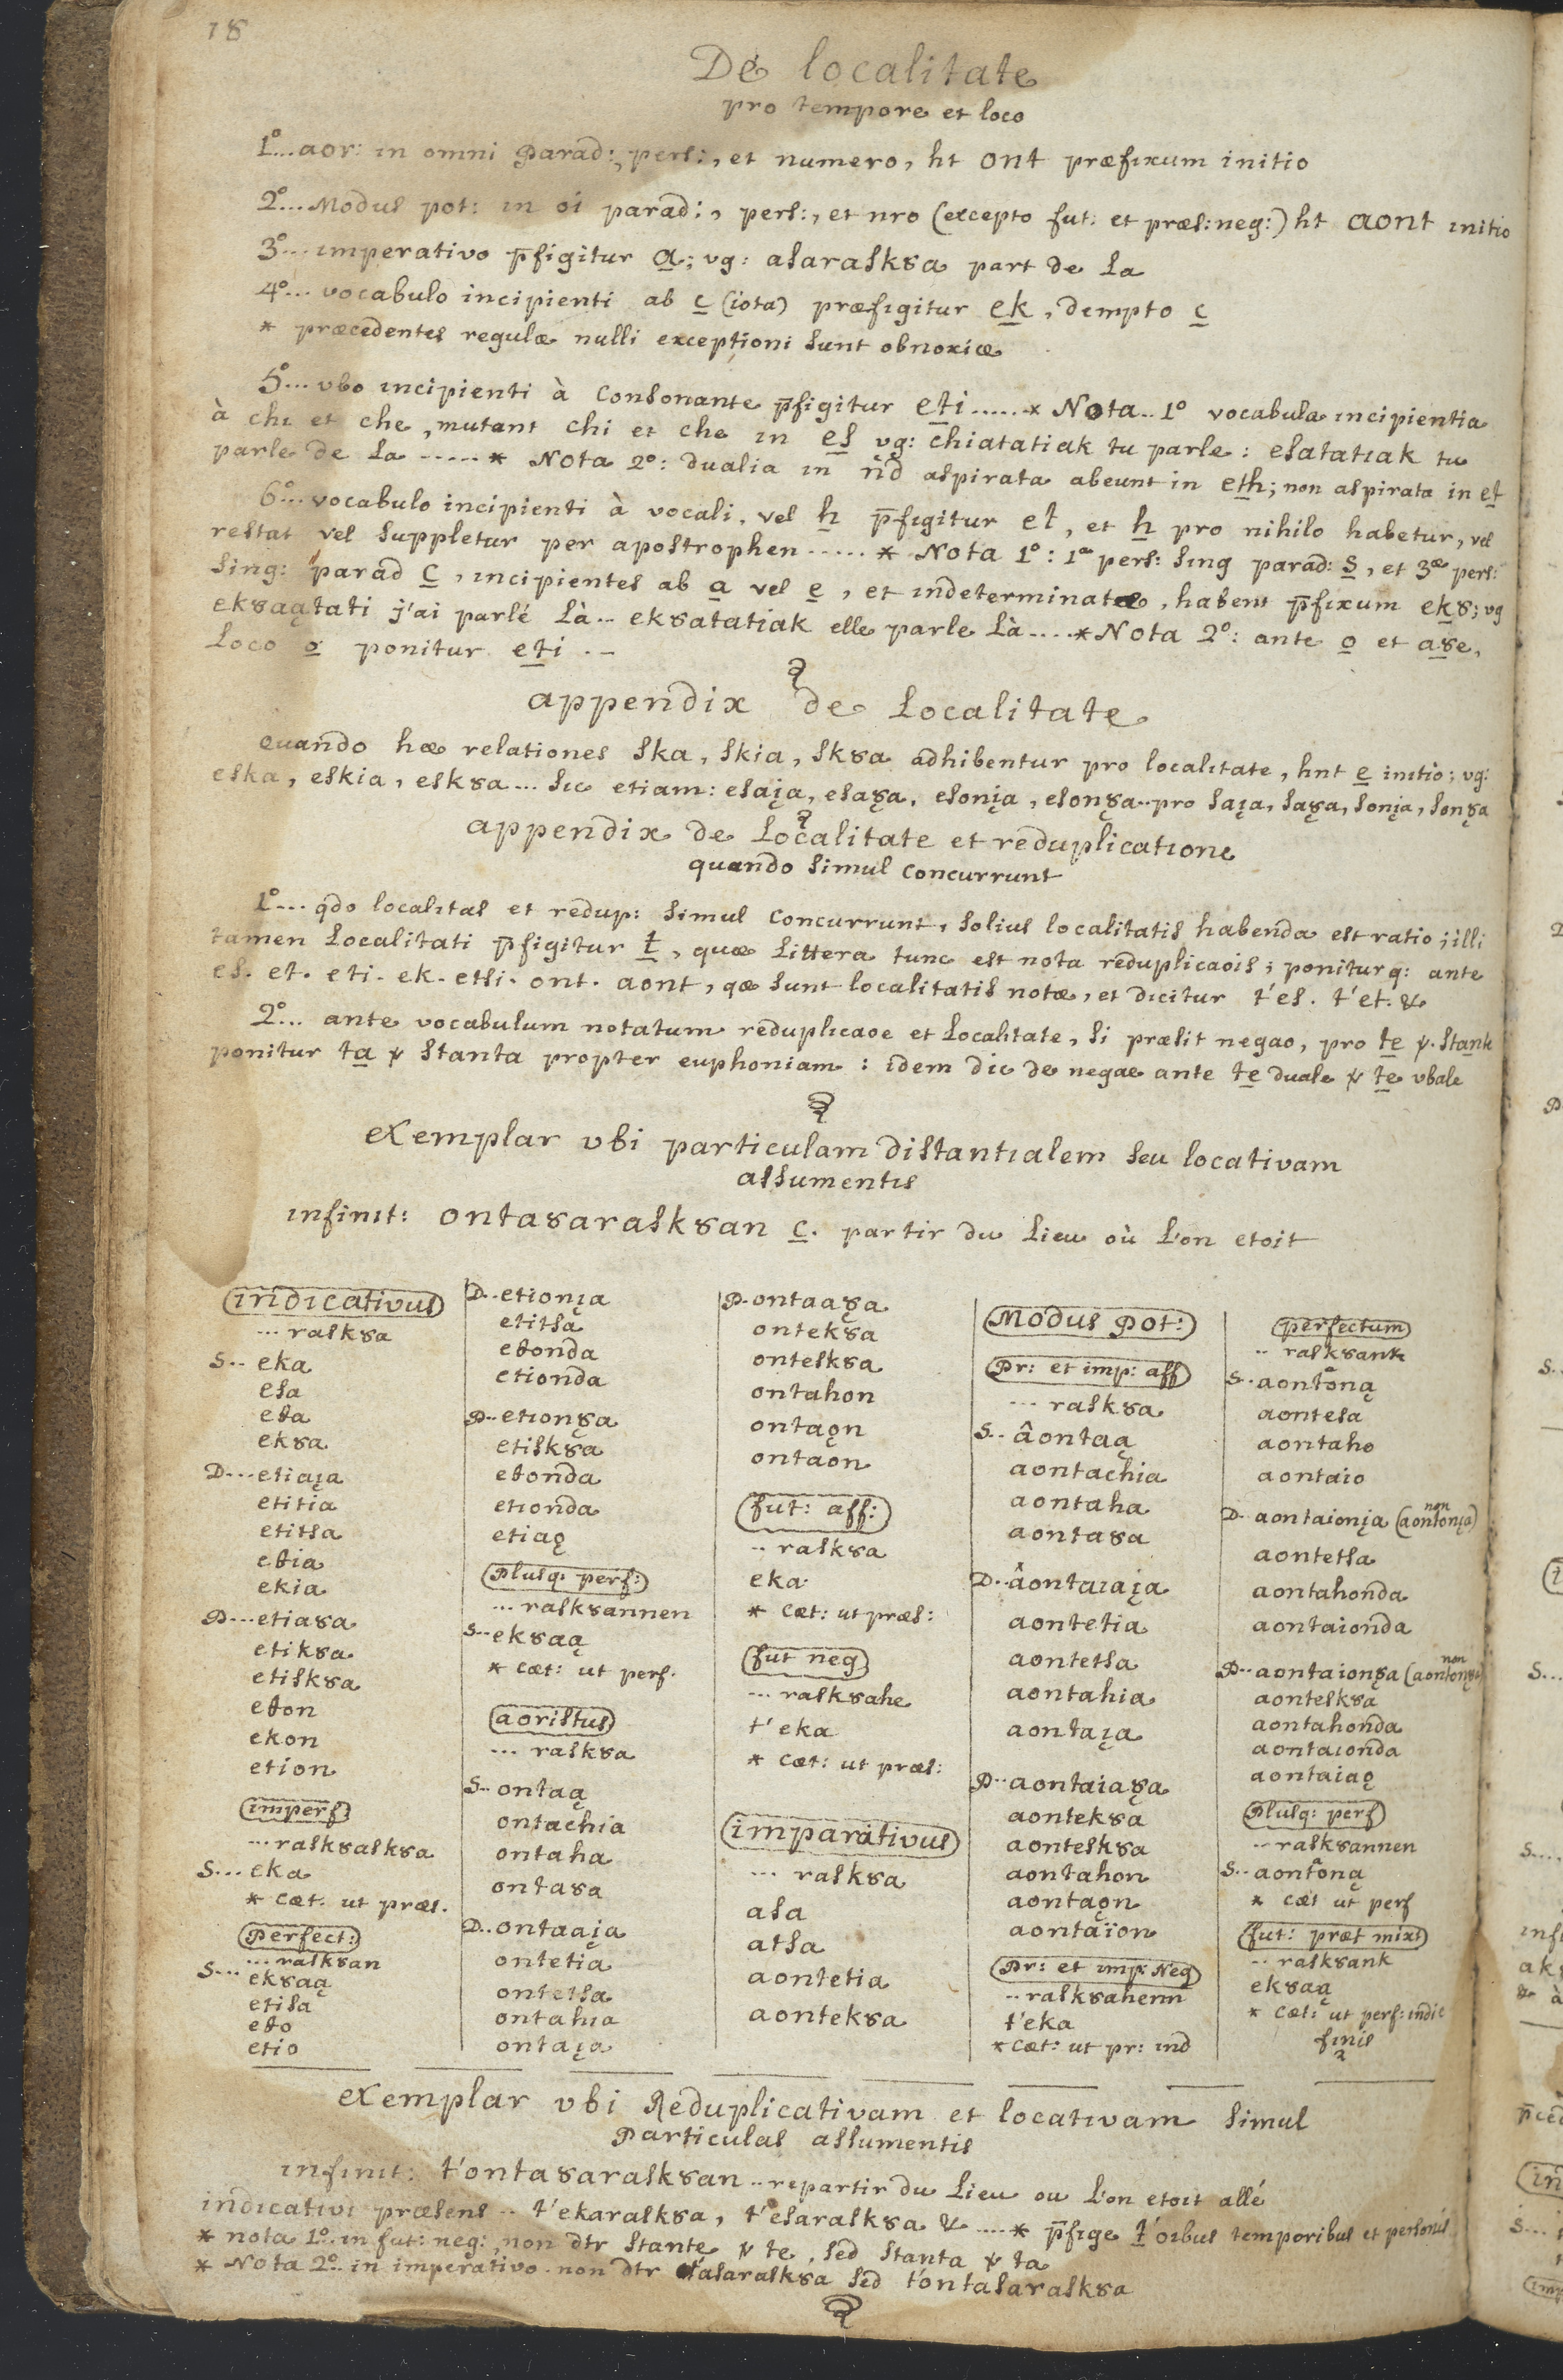 18
De localitate
pro tempore et loco
1º... aor: in omni Parad:, pers:, et numero, ht ont præfixum initio
2º... Modus pot: in oi parad:, pers:, et nro (excepto fut: et præs: neg:) ht aont initio
3º... imperativo p̄figitur a; vg: asaralskȣa part de la
4º... vocabulo incipienti ab c (iota) præfigitur ek, dempto c
* præcedentes regulæ nulli exceptioni sunt obnoxiæ
5º... vbo incipienti à Consonante p̄figitur eti ...... * Nota.. 1º vocabula incipientia
à chi et che, mutant chi et che in es vg: chiatatiak tu parle : esatatiak tu
parle de la ...... * Nota 2º: dualia in n̄d aspirata abeunt in eth; non aspirata in et
6º... vocabulo incipienti à vocali, vel h p̄figitur et, et h pro nihilo habetur, vel
restat vel suppletur per apostrophen ...... * Nota 1º: 1æ pers: sing parad: s, et 3æ pers:
sing: parad c, incipientes ab a vel e, et indeterminatæ, habent p̄fixum ekȣ; vg
ekȣaątati j'ai parlé là.. ekȣatatiak elle parle là .... * Nota 2º: ante o et aȣe,
loco ȣ ponitur eti . –
appendix de Localitate
quando hæ relationes ska, skia, skȣa adhibentur pro localitate, hnt e initio; vg:
eska, eskia, eskȣa ... sic etiam: esaįa, esaȣ̨a, esonįa, esonȣ̨a.. pro saįa, saȣ̨a, sonįa, sonȣ̨a
appendix de Localitate et reduplicatione
quando simul concurrunt
1º... qdo localitas et redup: simul concurrunt, solius localitatis habenda est ratio; illi
tamen Localitati p̄figitur t, quæ littera tunc est nota reduplicaois; ponitur q: ante
es. et. eti. ek. etsi. ont. aont, qæ sunt localitatis notæ, et dicitur t'es. t'et. &
2º... ante vocabulum notatum reduplicaoe et Localitate, si præsit negao, pro te v. stante
ponitur ta v stanta propter euphoniam : idem dic de negae ante te duale v te vbale
exemplar vbi particulam distantialem seu locativam
assumentis
infinit: ontaȣaraskȣan c. partir du lieu où l'on etoit
indicativus
... raskȣa
S.. eka
esa
eta
ekȣa
D... etiaįa
etitia
etitsa
etia
ekia
P... etiaȣa
etikȣa
etiskȣa
eton
ekon
etion
imperf
... raskȣaskȣa
S... eka
* cæt: ut præs.
Perfect:
... raskȣan
S... ekȣaą
etisa
eto
etio
D.. etionįa
etitsa
etonda
etionda
P.. etionȣ̨a
etiskȣa
etonda
etionda
etiaǫ
Plusq: perf:
... raskȣannen
S.. ekȣaą
* cæt: ut perf.
aoristus
... raskȣa
S.. ontaą
ontachia
ontaha
ontaȣa
D.. ontaaįa
ontetia
ontetsa
ontahia
ontaįa
P. ontaaȣ̨a
ontekȣa
onteskȣa
ontahon
ontaǫn
ontaon
fut: aff:
.. raskȣa
eka
* cæt: ut præs:
fut neg
... raskȣahe
t'eka
* cæt: ut præs:
imparativus
... raskȣa
asa
atsa
aontetia
aontekȣa
Modus Pot:
Pr: et imp: aff
... raskȣa
S.. âontaą
aontachia
aontaha
aontaȣa
D.. âontaiaįa
aontetia
aontetsa
aontahia
aontaįa
P.. aontaiaȣ̨a
aontekȣa
aonteskȣa
aontahon
aontaǫn
aontaïon
Pr: et imp: Neg
.. raskȣahenn
t'eka
* cæt: ut pr: ind
perfectum
.. raskȣank
S.. aontoną
aontesa
aontaho
aontaio
D. aontaionįa (non aontonįa)
aontetsa
aontahonda
aontaionda
P.. aontaionȣ̨a (non aontonȣ̨a)
aonteskȣa
aontahonda
aontaionda
aontaiaǫ
Plusq: perf
.. raskȣannen
S.. aontoną
* cæt ut perf
fut: præt mixt
.. raskȣank
ekȣaą
* cæt: ut perf: indic
finis
exemplar vbi Reduplicativam et locativam simul
Particulas assumentis
infinit: t'ontaȣaraskȣan .. repartir du lieu ou l'on etoit allé
indicativi præsens .. t'ekaraskȣa, t'esaraskȣa & .... * p̄fige t' oibus temporibus et personis
* nota 1º. in fut: neg:, non dtr stante v te, sed stanta v ta
* Nota 2º. in imperativo. non dtr t'asaraskȣa sed t'ontasaraskȣa